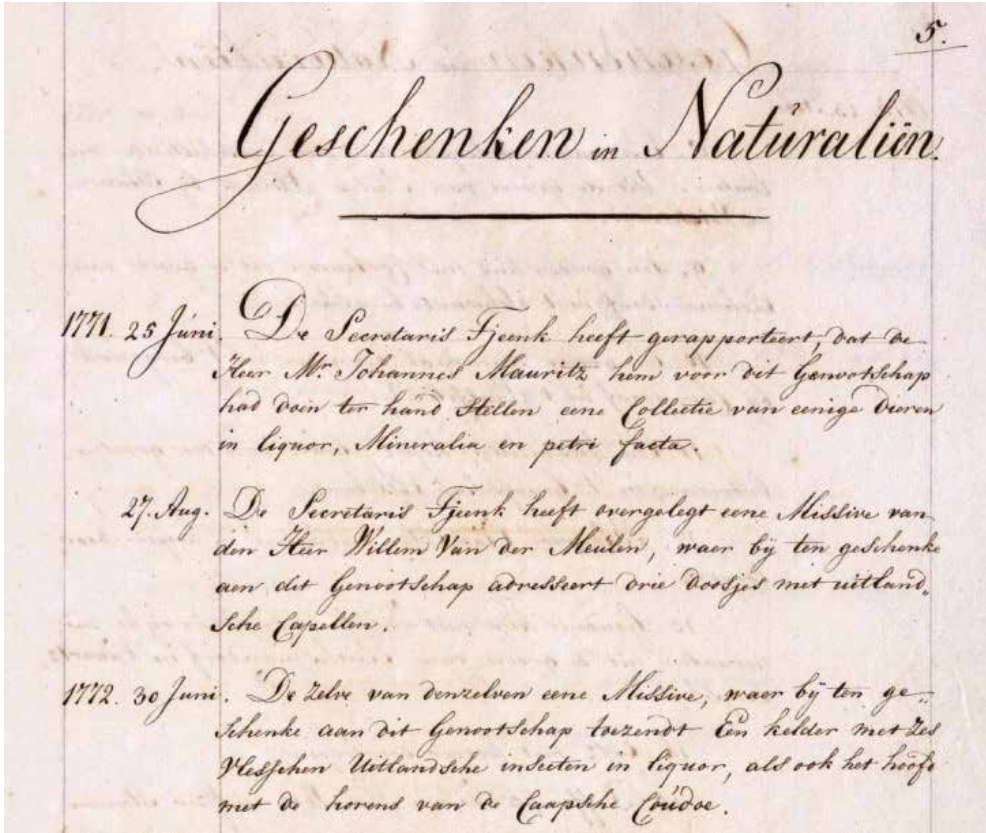 5.
Geschenken in Natŭraliën.
1771. 25 Júni. De Secretaris Tjeenk heeft gerapporteert, dat de
Heer Mr. Johannes Mauritz hem voor dit Genootschap
had doen ter hand Stellen eene Collectie van eenige dieren
in liquor, Mineralia en petri facta.
27. Aug. De Secretaris Tjeenk heeft overgelegt eene Missive van
den Heer Willem Van der Meulen, waer bij ten geschenke
aen dit Genootschap adresseert drie doosjes met uitland„
sche Capellen.
1772. 30 Juni. De zelve van denzelven eene Missive, waer bij ten ge„
schenke aan dit Genootschap toezendt Een kelder met Zes
Vlesschen Uitlandsche insecten in liquor, als ook het hoofd
met de horens van de Caapsche Coúdoe.